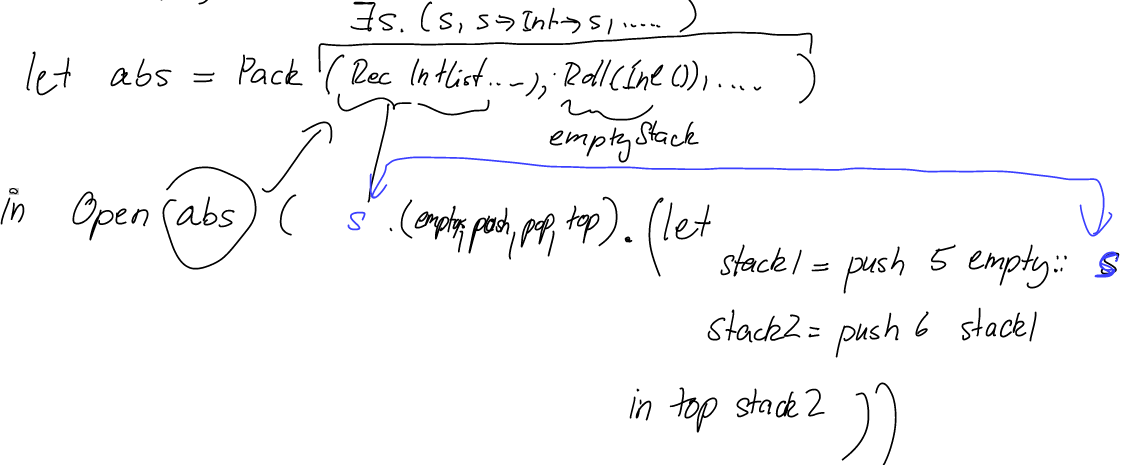 ∃s. (s, s→Int→s, .....)
let abs = Pack ((Rec IntList....), Roll(Inl ()), .... )
emptyStack
in Open (abs) ( s .(empty, push, pop, top). (let
stack1 = push 5 empty :: s
stack2 = push 6 stack1
in top stack2 ))